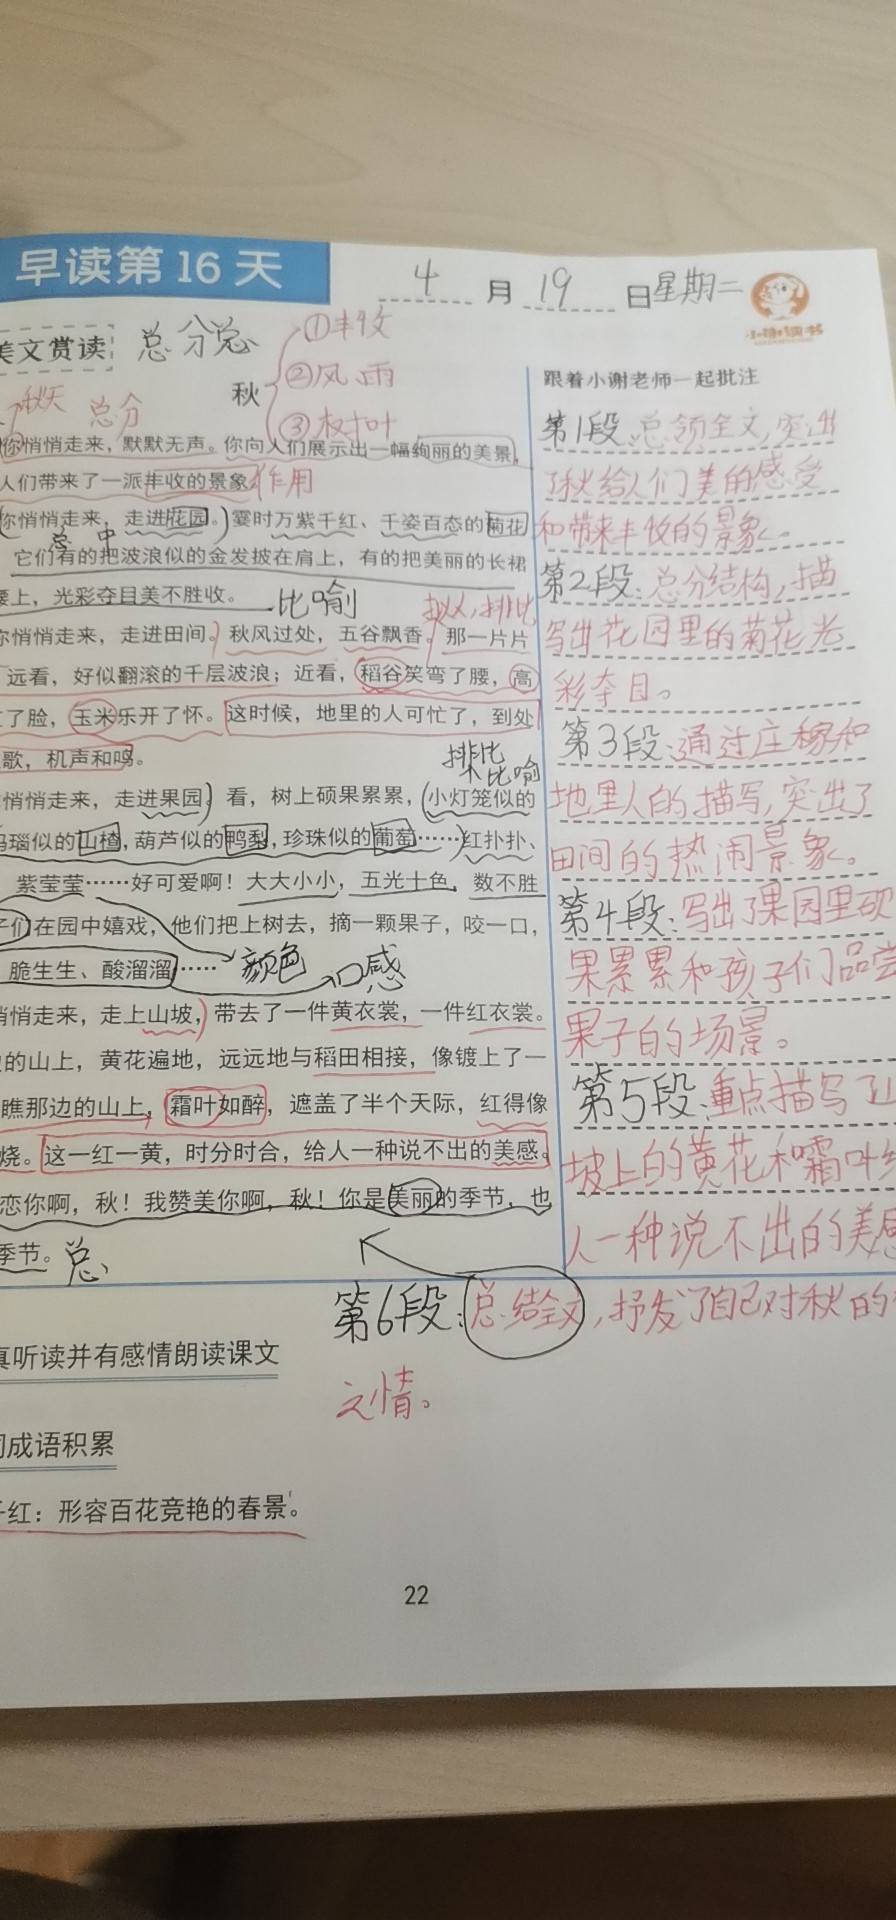 早读第 16 天
4月19日星期二
美文赏读 总分总
①丰收
②风、雨
③枝叶
秋
秋天 总分
跟着小谢老师一起批注
你悄悄走来，默默无声。你向人们展示出一幅绚丽的美景，
人们带来了一派丰收的景象 作用
你悄悄走来，走进花园。霎时万紫千红、千姿百态的菊花
总 中
它们有的把波浪似的金发披在肩上，有的把美丽的长裙
腰上，光彩夺目美不胜收。 比喻
拟人,排比
你悄悄走来，走进田间。秋风过处，五谷飘香。那一片片
远看，好似翻滚的千层波浪；近看，稻谷笑弯了腰，高
了脸，玉米乐开了怀。这时候，地里的人可忙了，到处
歌，机声和鸣。
排比
比喻
悄悄走来，走进果园。看，树上硕果累累，小灯笼似的
玛瑙似的山楂，葫芦似的鸭梨，珍珠似的葡萄……红扑扑、
紫莹莹……好可爱啊！大大小小，五光十色，数不胜
子们在园中嬉戏，他们把上树去，摘一颗果子，咬一口，
脆生生、酸溜溜…… 颜色 口感
悄悄走来，走上山坡，带去了一件黄衣裳，一件红衣裳。
的山上，黄花遍地，远远地与稻田相接，像镀上了一
瞧那边的山上，霜叶如醉，遮盖了半个天际，红得像
烧。这一红一黄，时分时合，给人一种说不出的美感。
恋你啊，秋！我赞美你啊，秋！你是美丽的季节，也
季节。 总
第1段:总领全文,突出
了秋给人们美的感受
和带来丰收的景象。
第2段:总分结构,描
写出花园里的菊花光
彩夺目。
第3段:通过庄稼和
地里人的描写,突出了
田间的热闹景象。
第4段:写出了果园里硕
果累累和孩子们品尝
果子的场景。
第5段:重点描写了山
坡上的黄花和霜叶给
人一种说不出的美感
第6段:总结全文,抒发了自己对秋的
之情。
真听读并有感情朗读课文
词成语积累
千红：形容百花竞艳的春景。
22